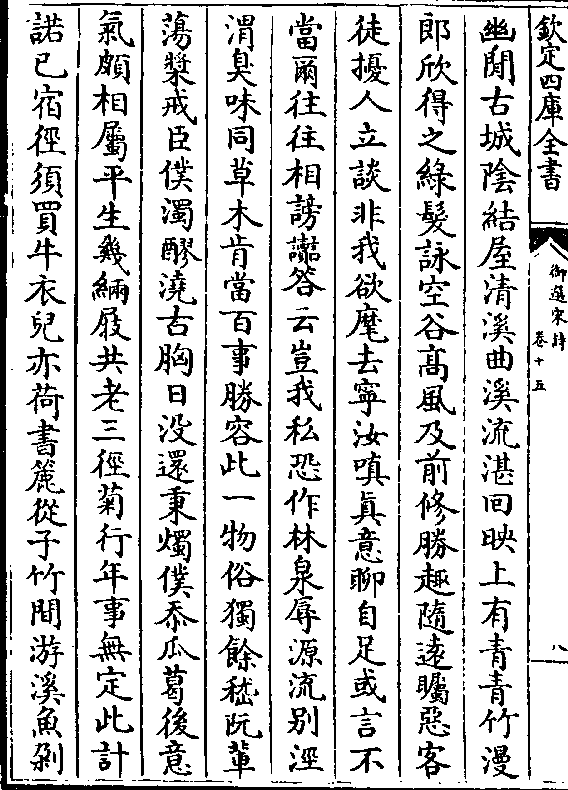 欽定四庫全書
御選宋詩
卷十五
八
幽閒古城陰結屋清溪曲溪流湛回映上有青青竹漫
郎欣得之綠髮詠空谷高風及前修勝趣隨遠矚惡客
徒擾人立談非我欲麾去寧汝嗔真意聊自足或言不
當爾往往相謗讟答云豈我私恐作林泉辱源流别涇
渭臭味同草木肯當百事勝容此一物俗獨餘嵇阮輩
蕩槳戒臣僕濁醪澆古胸日没還秉燭僕忝瓜葛後意
氣頗相屬平生幾緉屐共老三徑菊行年事無定此計
諾已宿徑須買牛衣兒亦荷書簏從子竹間游溪魚剁